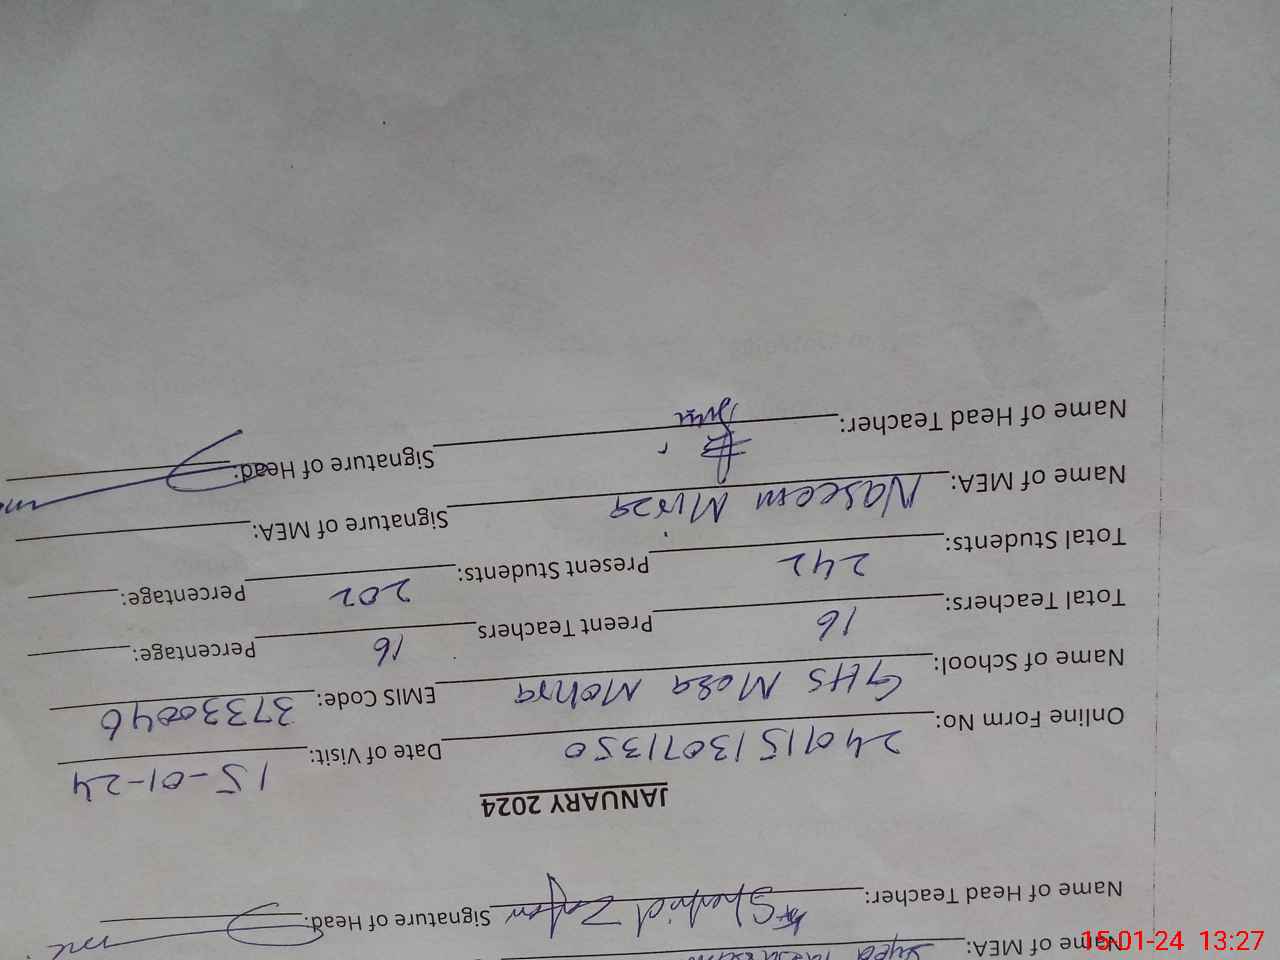 Name of MEA:
Name of Head Teacher: Shahid Zafar Signature of Head:
JANUARY 2024
Online Form No: 2401513071350 Date of Visit: 15-01-24
Name of School: GHS Mora Mohra EMIS Code: 37330046
Total Teachers: 16 Preent Teachers 16 Percentage:
Total Students: 242 Present Students: 202 Percentage:
Name of MEA: Naseem Mirza Signature of MEA:
Name of Head Teacher: Signature of Head:
15-01-24 13:27